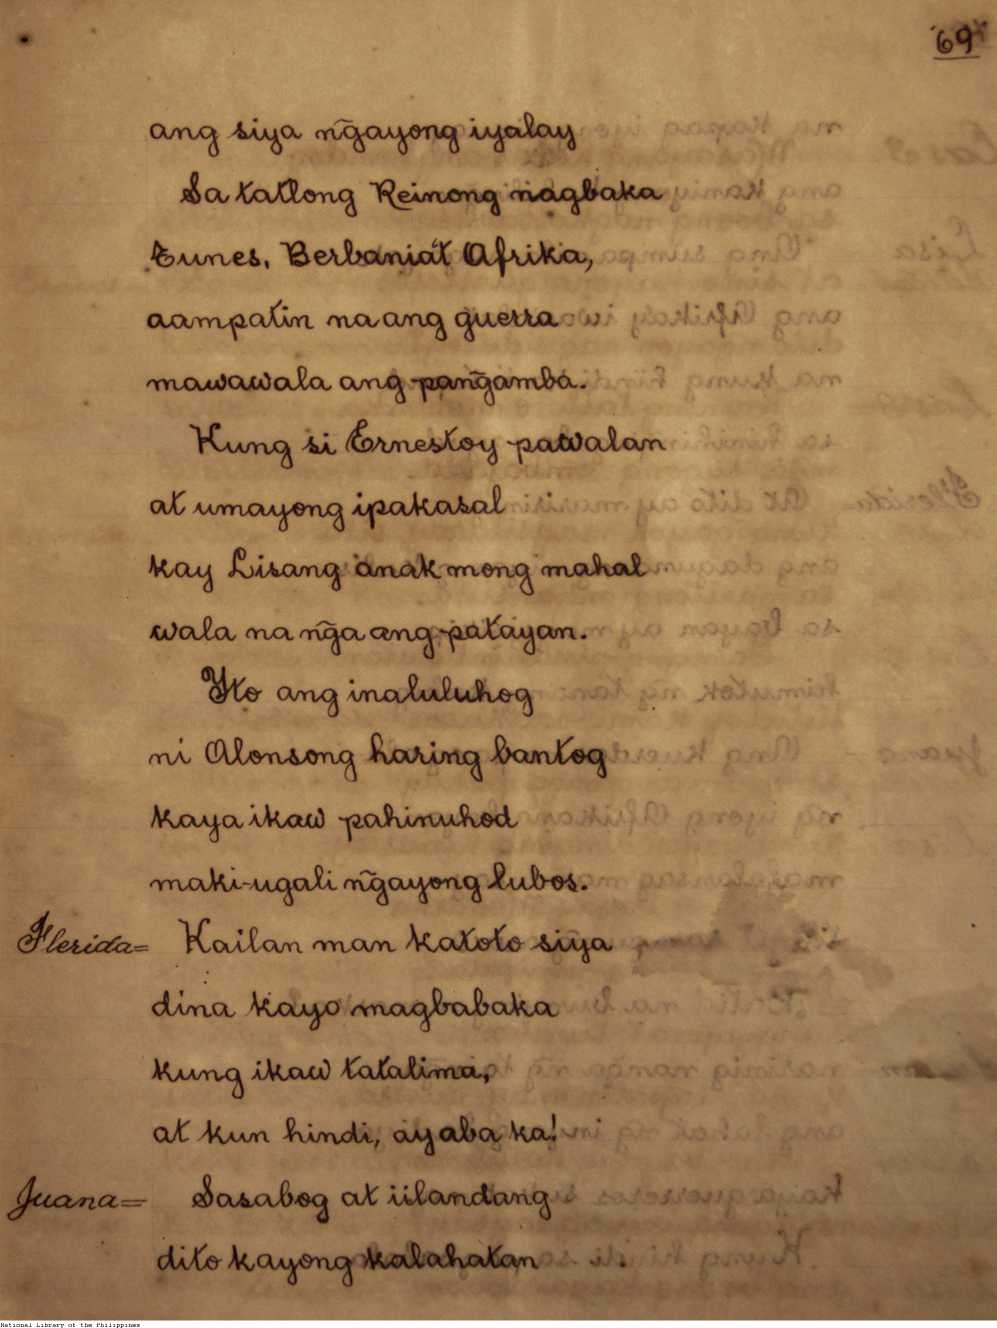 69
ang siya n͠gayong iyalay
Sa tatlong Reinong nagbaka
Tunes, Berbania't Afrika,
aampatin na ang guerra
mawawala ang pan͠gamba.
Kung si Ernestoy pawalan
at umayong ipakasal
kay Lisang anak mong mahal
wala na n͠ga ang patayan.
Yto ang inaluluhog
ni Alonsong haring bantog
kaya ikaw pahinuhod
maki-ugali n͠gayong lubos.
Flerida= Kailan man katoto siya
dina kayo magbabaka
kung ikaw tatalima,
at kun hindi, ay aba ka!
Juana= Sasabog at iilandang
dito kayong kalahatan
National Library of the Philippines